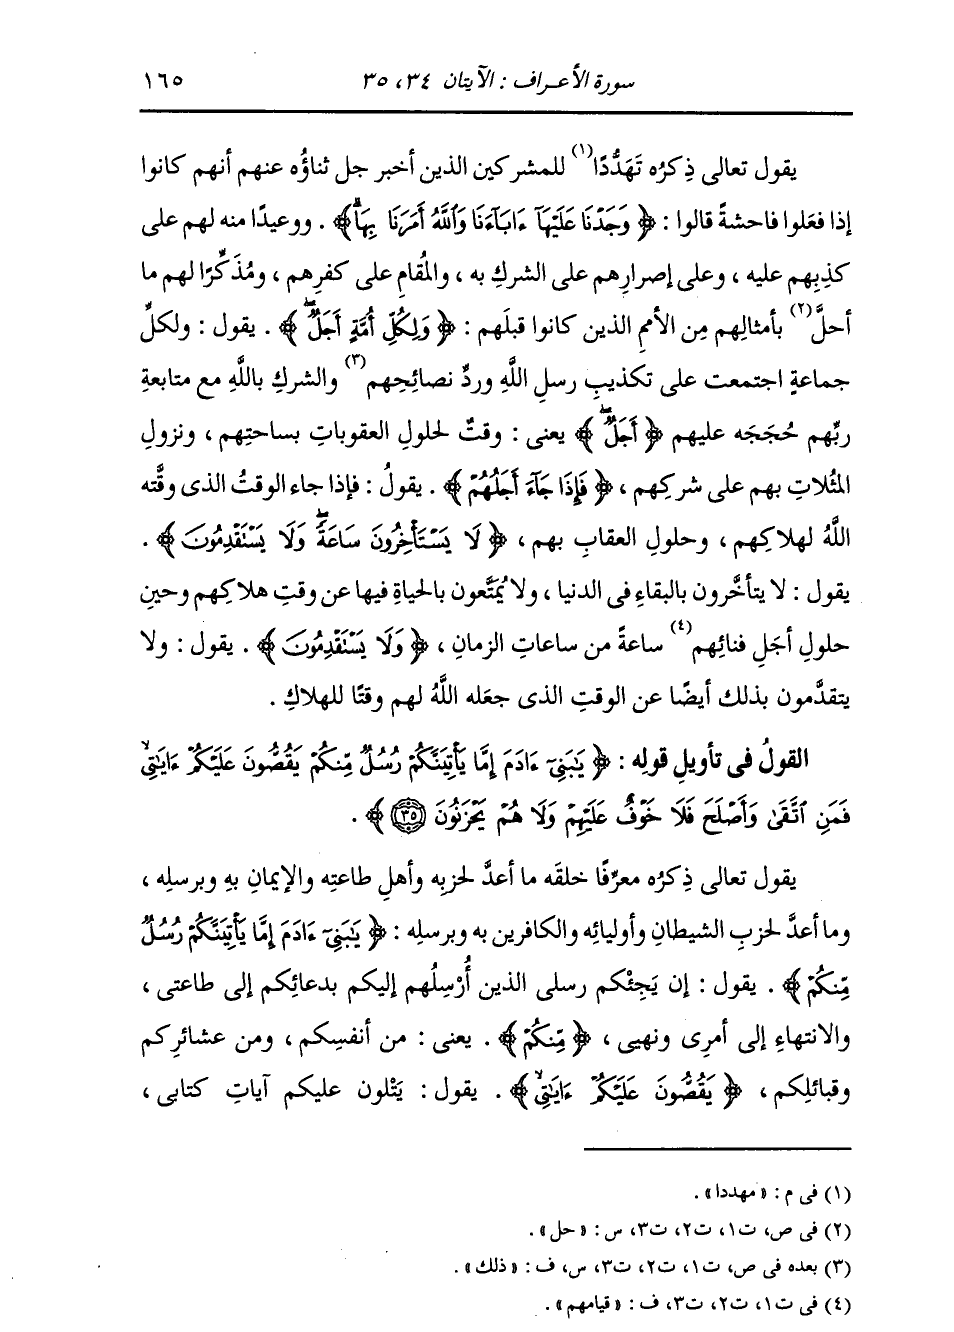 سورة الأعراف : الآيتان ٣٤، ٣٥ ١٦٥
يقول تعالى ذِكرُه تَهَدُّدًا(١) للمشركين الذين أخبر جل ثناؤُه عنهم أنهم كانوا
إذا فعَلوا فاحشةً قالوا : ﴿ وَجَدْنَا عَلَيْهَآ ءَابَآءَنَا وَٱللَّهُ أَمَرَنَا بِهَاۗ ﴾ . ووعيدًا منه لهم على
كذِبِهم عليه ، وعلى إصرارِهم على الشركِ به ، والمُقامِ على كفرِهم ، ومُذَكِّرًا لهم ما
أحلَّ(٢) بأمثالِهم مِن الأممِ الذين كانوا قبلَهم : ﴿ وَلِكُلِّ أُمَّةٍ أَجَلٌۖ ﴾ . يقول : ولكلِّ
جماعةٍ اجتمعت على تكذيبِ رسلِ اللَّهِ وردِّ نصائحِهم(٣) والشركِ باللَّهِ مع متابعةِ
ربِّهم حُجَجَه عليهم ﴿ أَجَلٌۖ ﴾ يعنى : وقتٌ لحلولِ العقوباتِ بساحتِهم ، ونزولِ
المثُلاتِ بهم على شركِهم ، ﴿ فَإِذَا جَآءَ أَجَلُهُمْ ﴾ . يقولُ : فإذا جاء الوقتُ الذى وقَّته
اللَّهُ لهلاكِهم ، وحلولِ العقابِ بهم ، ﴿ لَا يَسْتَأْخِرُونَ سَاعَةًۖ وَلَا يَسْتَقْدِمُونَ ﴾ .
يقول : لا يتأخَّرون بالبقاءِ فى الدنيا ، ولا يُمَتَّعون بالحياةِ فيها عن وقتِ هلاكِهم وحينِ
حلولِ أجَلِ فنائِهم(٤) ساعةً من ساعاتِ الزمانِ ، ﴿ وَلَا يَسْتَقْدِمُونَ ﴾ . يقول : ولا
يتقدَّمون بذلك أيضًا عن الوقتِ الذى جعَله اللَّهُ لهم وقتًا للهلاكِ .
القولُ فى تأويلِ قولِه : ﴿ يَٰبَنِىٓ ءَادَمَ إِمَّا يَأْتِيَنَّكُمْ رُسُلٌ مِّنكُمْ يَقُصُّونَ عَلَيْكُمْ ءَايَٰتِىۙ
فَمَنِ ٱتَّقَىٰ وَأَصْلَحَ فَلَا خَوْفٌ عَلَيْهِمْ وَلَا هُمْ يَحْزَنُونَ ٣٥ ﴾ .
يقول تعالى ذِكرُه معرِّفًا خلقَه ما أعدَّ لحزبِه وأهلِ طاعتِه والإيمانِ بِهِ وبرسلِه ،
وما أعدَّ لحزبِ الشيطانِ وأوليائِه والكافرين به وبرسلِه : ﴿ يَٰبَنِىٓ ءَادَمَ إِمَّا يَأْتِيَنَّكُمْ رُسُلٌ
مِّنكُمْ ﴾ . يقول : إن يَجِئْكم رسلى الذين أُرْسِلُهم إليكم بدعائِكم إلى طاعتى ،
والانتهاءِ إلى أمرِى ونهيى ، ﴿ مِّنكُمْ ﴾ . يعنى : من أنفسِكم ، ومن عشائرِكم
وقبائلِكم ، ﴿ يَقُصُّونَ عَلَيْكُمْ ءَايَٰتِىۙ ﴾ . يقول : يَتْلون عليكم آياتِ كتابى ،
(١) فى م : « مهددا » .
(٢) فى ص، ت١، ت٢، ت٣، س : « حل » .
(٣) بعده فى ص، ت١، ت٢، ت٣، س، ف : « ذلك » .
(٤) فى ت١، ت٢، ت٣، ف : « قيامهم » .